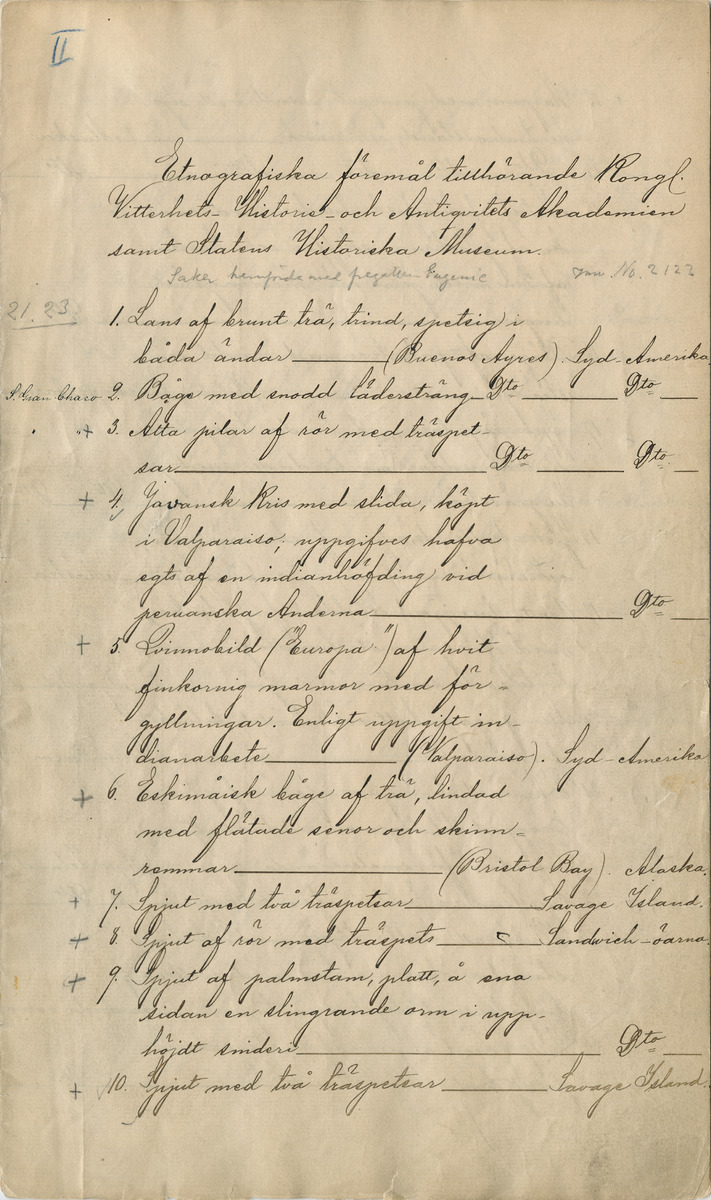 II
Etnografiska föremål tillhörande Kongl.
Vitterhets- Historie- och Antiqvitets Akademien
samt Statens Historiska Museum.
Saker hemförda med fregatten Eugenie Inv. No. 2122
21. 23
1. Lans af brunt trä, trind, spetsig i
båda ändar (Buenos Ayres). Syd-Amerika
S. Gran Chaco 2. Båge med snodd lädersträng Dto Dto
"+ 3. Åtta pilar af rör med träspet-
sar Dto Dto
+ 4. Javansk Kris med slida, köpt
i Valparaiso; uppgifves hafva
egts af en indianhöfding vid
peruanska Anderna Dto
+ 5. Qvinnobild ("Europa") af hvit
finkornig marmor med för-
gyllningar. Enligt uppgift in-
dianarbete (Valparaiso). Syd-Amerika
+ 6. Eskimåisk båge af trä, lindad
med flätade senor och skinn-
remmar (Bristol Bay). Alaska.
+ 7. Spjut med två träspetsar Savage Island.
+ 8. Spjut af rör med träspets Sandwich-öarna.
+ 9. Spjut af palmstam, platt, å ena
sidan en slingrande orm i upp-
höjdt snideri Dto
+ 10. Spjut med två träspetsar Savage Island.